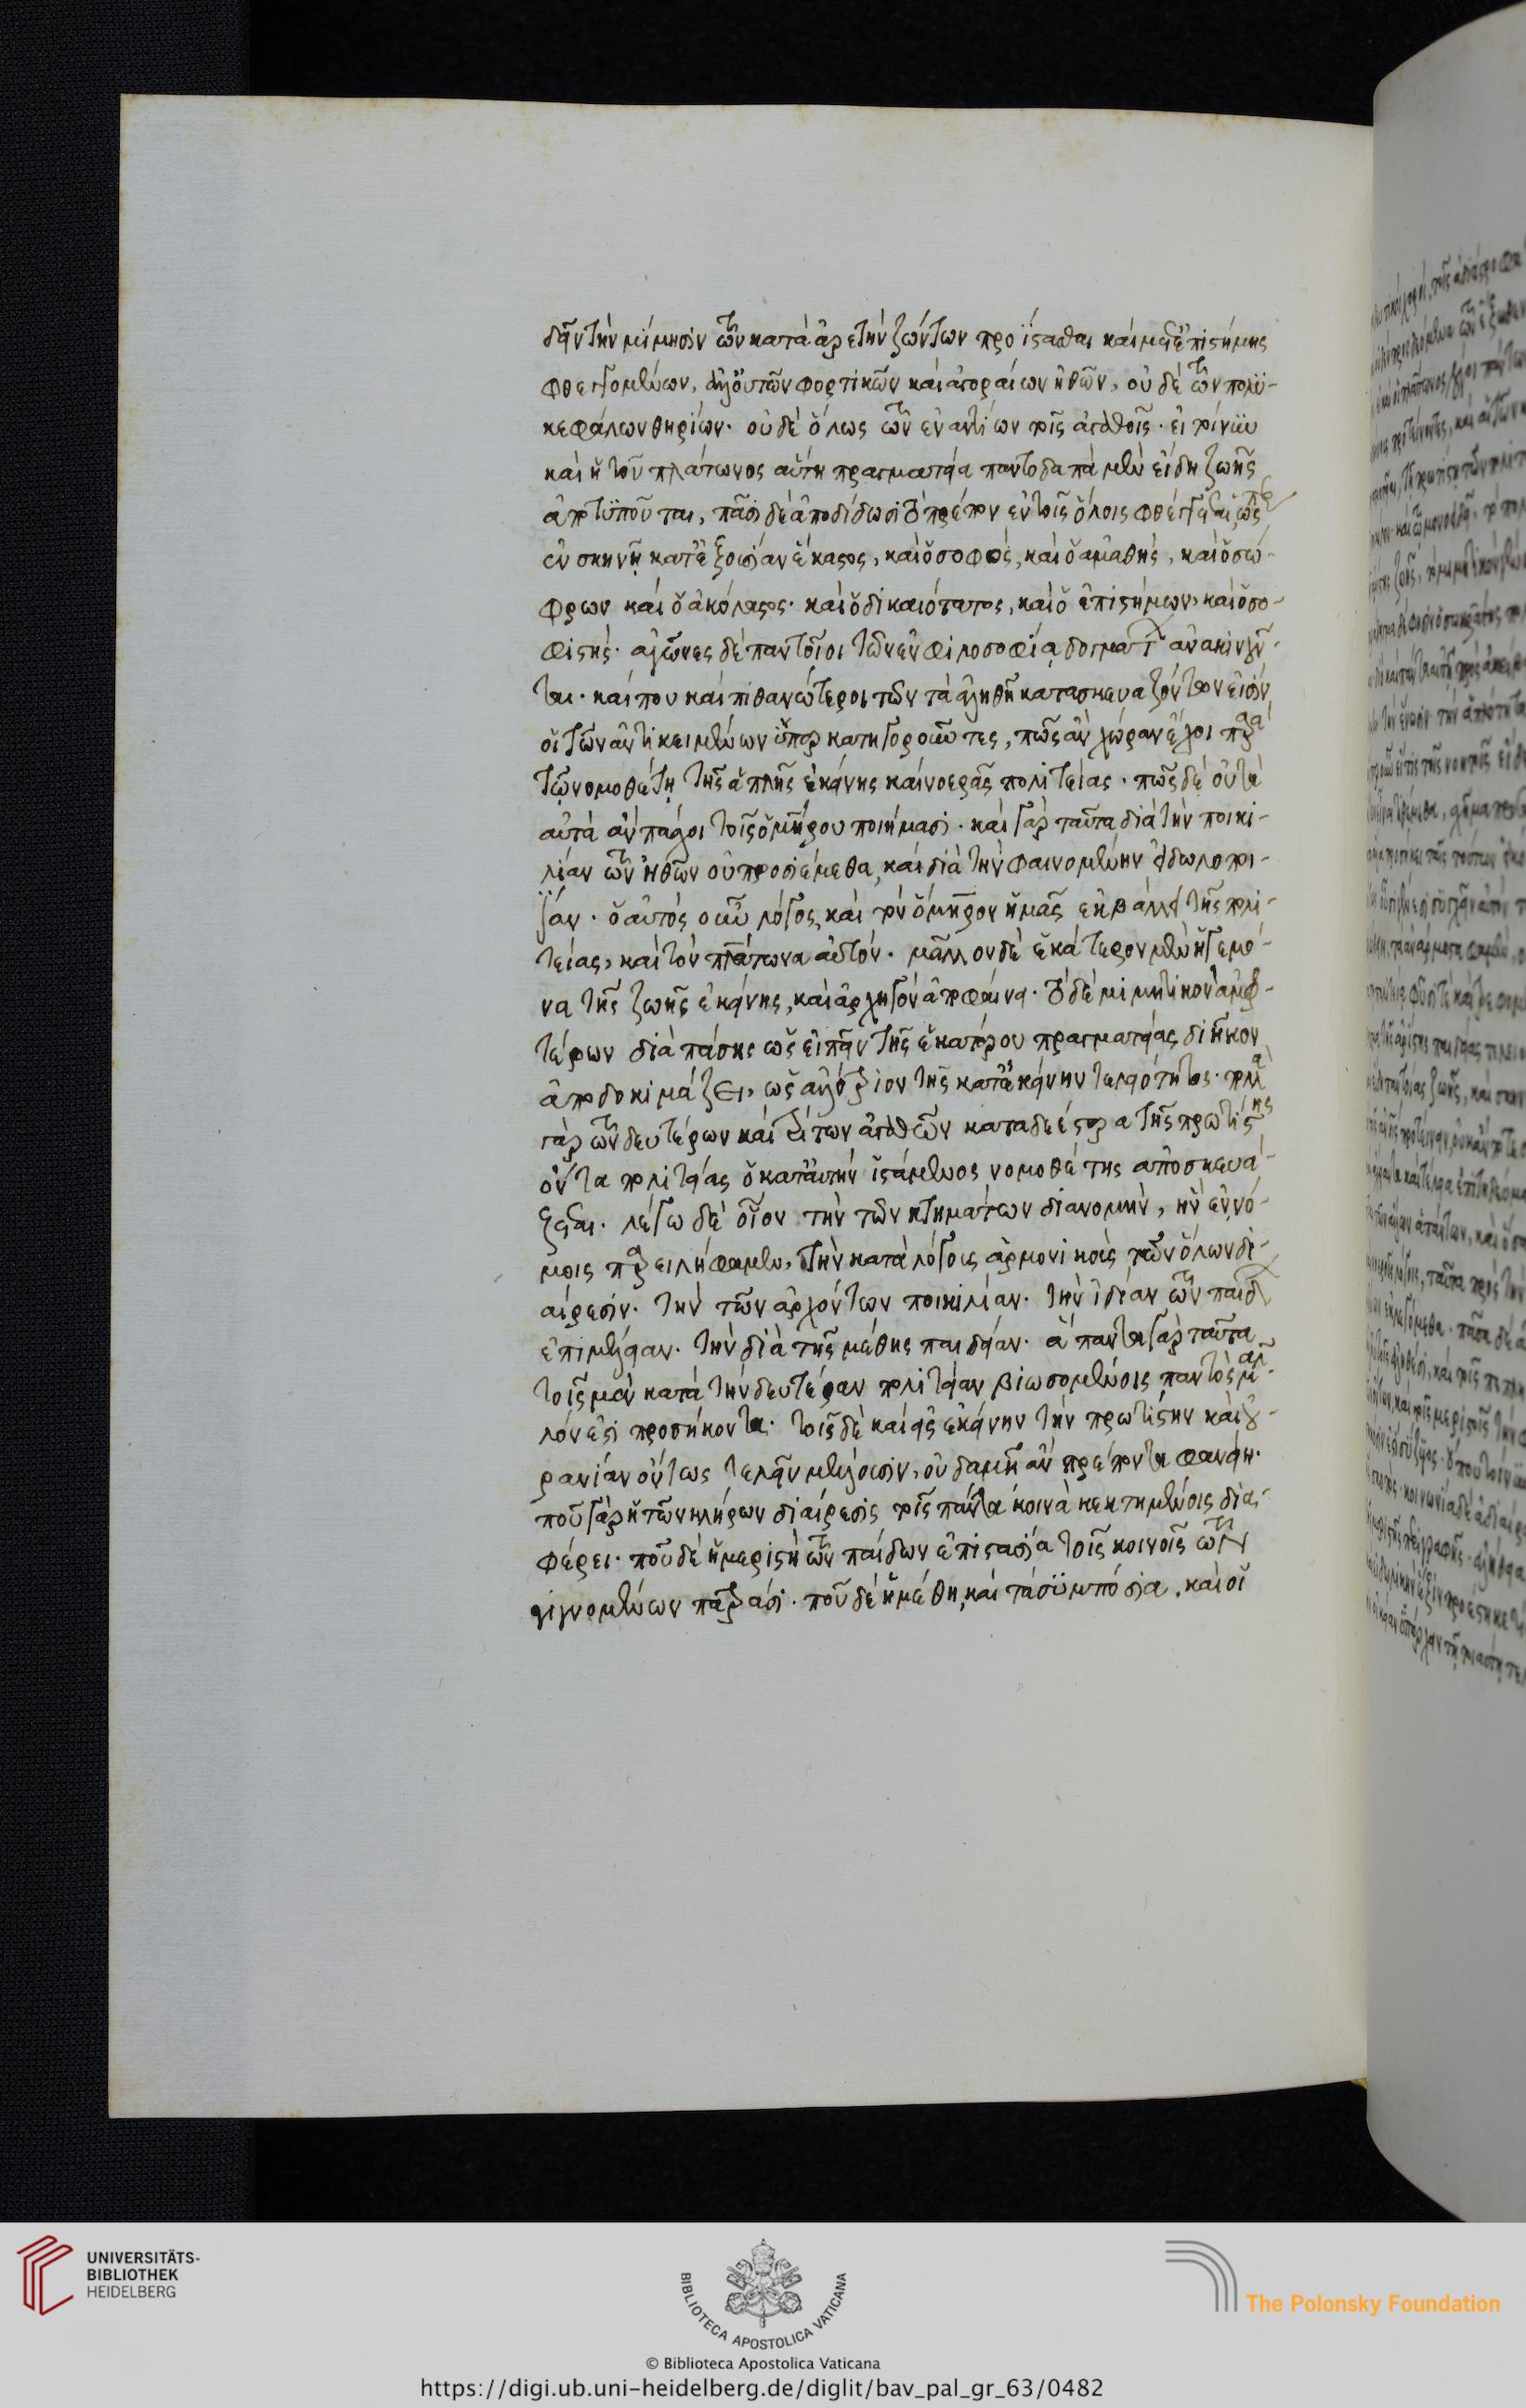 δεῖν τὴν μίμησιν τῶν κατὰ ἀρετὴν ζώντων προΐστασθαι καὶ μετ' ἐπιστήμης
φθεγγομένων, ἀλλ' οὐ τῶν φορτικῶν καὶ ἀγοραίων ἠθῶν, οὐδὲ τῶν πολυ-
κεφάλων θηρίων. οὐδὲ ὅλως τῶν ἐναντίων τοῖς ἀγαθοῖς. εἰ τοίνυν
καὶ ἡ τοῦ πλάτωνος αὕτη πραγματεία παντοδαπὰ μὲν εἴδη ζωῆς
ἀποτυποῦται, πᾶσι δὲ ἀποδίδωσι τὸ πρέπον ἐν τοῖς ὅλοις φθέγγεται, ὥσπερ
ἐν σκηνῇ κατ' ἐξουσίαν ἕκαστος, καὶ ὁ σοφὸς, καὶ ὁ ἀμαθὴς, καὶ ὁ σώ-
φρων καὶ ὁ ἀκόλαστος. καὶ ὁ δικαιότατος, καὶ ὁ ἐπιστήμων, καὶ ὁ σο-
φιστής. ἀγῶνες δὲ παντοῖοι τῶν ἐν φιλοσοφίᾳ δογμάτων ἀνακινοῦν-
ται. καί που καὶ πιθανώτεροι τῶν τὰ ἀληθῆ κατασκευαζόντων εἰσὶν
οἱ τῶν ἀντικειμένων ὑπερκατηγοροῦντες, πῶς ἂν χώραν ἔχοι παρὰ
τῷ νομοθέτῃ τῆς ἁπλῆς ἐκείνης καὶ νοερᾶς πολιτείας. πῶς δὲ οὐ τὰ
αὐτὰ ἂν πάθοι τοῖς ὁμήρου ποιήμασι. καὶ γὰρ ταῦτα διὰ τὴν ποικι-
λίαν τῶν ἠθῶν οὐ προσιέμεθα, καὶ διὰ τὴν φαινομένην εἰδωλοποι-
ίαν. ὁ αὐτὸς οὖν λόγος, καὶ τὸν ὅμηρον ἡμᾶς ἐκβάλλει τῆς πολι-
τείας, καὶ τὸν πλάτωνα αὐτόν. μᾶλλον δὲ ἑκάτερον μὲν ἡγεμό-
να τῆς ζωῆς ἐκείνης, καὶ ἀρχηγὸν ἀποφαίνει. τὸ δὲ μιμητικὸν ἀμφο-
τέρων διὰ πάσης ὡς εἰπεῖν τῆς ἑκατέρου πραγματείας διῆκον
ἀποδοκιμάζει, ὡς ἀλλότριον τῆς κατ' ἐκείνην τελειότητος. πολλὰ
γὰρ τῶν δευτέρων καὶ τρίτων ἀγαθῶν καταδεέστερα τῆς πρωτίστης
ὄντα πολιτείας ὁ κατ' αὐτὴν ἱστάμενος νομοθέτης ἀποσκευά-
ζεται. λέγω δὲ οἷον τὴν τῶν κτημάτων διανομὴν, ἣν ἐν νό-
μοις παρειλήφαμεν, τὴν κατὰ λόγους ἁρμονικοὺς τῶν ὅλων δι-
αίρεσιν. τὴν τῶν ἀρχόντων ποικιλίαν. τὴν ἰδίαν τῶν παίδων
ἐπιμέλειαν. τὴν διὰ τῆς μέθης παιδείαν. ἅπαντα γὰρ ταῦτα
τοῖς μὲν κατὰ τὴν δευτέραν πολιτείαν βιωσομένοις παντὸς μᾶλ-
λόν ἐστι προσήκοντα. τοῖς δὲ καὶ εἰς ἐκείνην τὴν πρωτίστην καὶ οὐ-
ρανίαν ὄντως τελεῖν μέλλουσιν, οὐδαμῆ ἂν πρέποντα φανείη.
ποῦ γὰρ ἡ τῶν κλήρων διαίρεσις τοῖς πάντα κοινὰ κεκτημένοις δια-
φέρει. ποῦ δὲ ἡ μεριστὴ τῶν παίδων ἐπιστασία τοῖς κοινοῖς τῶν
γιγνομένων πατράσι. ποῦ δὲ ἡ μέθη, καὶ τὰ συμπόσια, καὶ οἱ
UNIVERSITÄTS-
BIBLIOTHEK
HEIDELBERG
BIBLIOTECA APOSTOLICA VATICANA
The Polonsky Foundation
© Biblioteca Apostolica Vaticana
https://digi.ub.uni-heidelberg.de/diglit/bav_pal_gr_63/0482